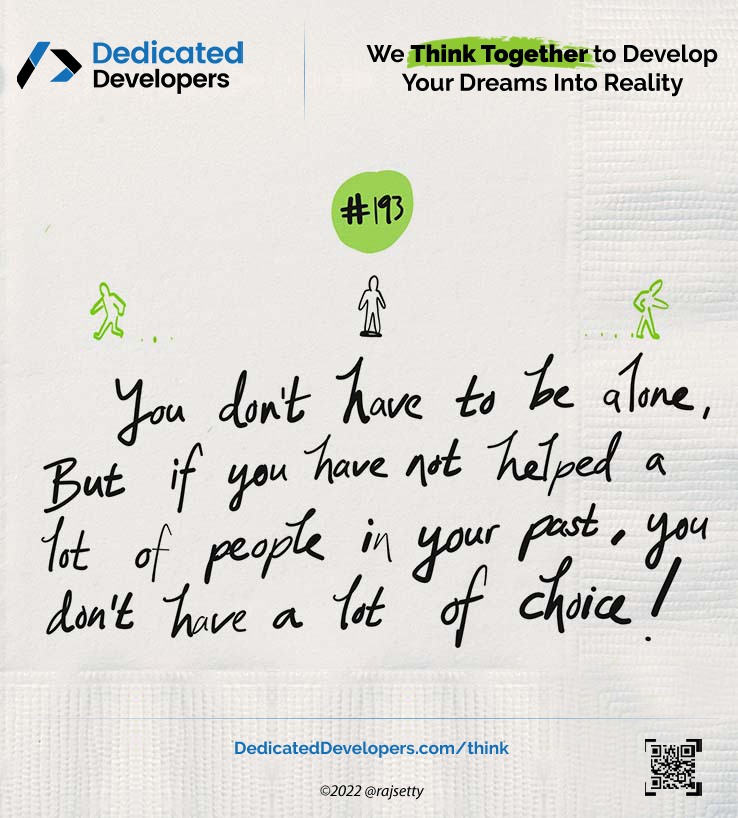 Dedicated
Developers
We Think Together to Develop
Your Dreams Into Reality
#193
You don't have to be alone,
But if you have not helped a
lot of people in your past, you
don't have a lot of choice!
DedicatedDevelopers.com/think
©2022 @rajsetty